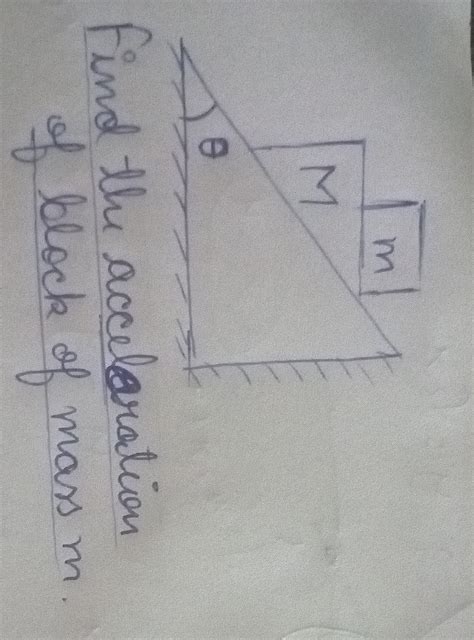 m
M
θ
Find the acceleration
of block of mass m.